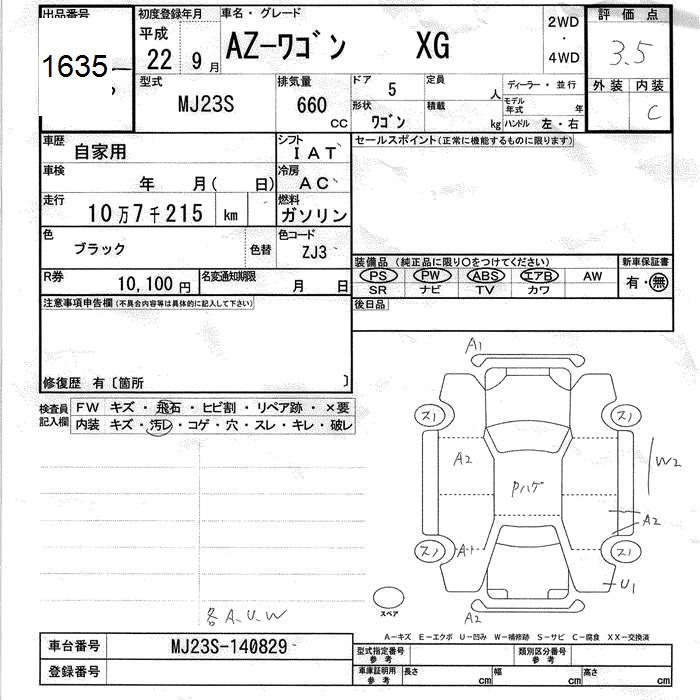 出品番号 初度登録年月 車名・グレード 評価点
1635
平成 22 9月 AZ-ワゴン XG 2WD・4WD 3.5
型式 MJ23S 排気量 660 CC ドア 5 定員 人 ディーラー・並行 外装 内装
形状 ワゴン 積載 kg モデル年式 年 ハンドル 左・右 C
車歴 自家用 シフト IAT セールスポイント(正常に機能するものに限ります)
車検 年 月( 日) 冷房 AC
走行 10万7千215 km 燃料 ガソリン
色 ブラック 色替 色コード ZJ3 装備品(純正品に限り○をつけてください) 新車保証書
R券 10,100円 名変通知期限 月 日 PS PW ABS エアB AW 有・無
SR ナビ TV カワ
注意事項申告欄(不具合内容等は具体的に記入して下さい) 後日品
修復歴 有〔箇所 〕
検査員記入欄 FW キズ・飛石・ヒビ割・リペア跡・×要
内装 キズ・汚レ・コゲ・穴・スレ・キレ・破レ
A1
ス1 ス1
A2 Pハゲ W2
A2
ス1 A1 ス1
U1
スペア A2
各A.U.W
A-キズ E-エクボ U-凹み W-補修跡 S-サビ C-腐食 XX-交換済
車台番号 MJ23S-140829 型式指定番号 参考 類別区分番号 参考
登録番号 車庫証明用 参考 長さ cm 幅 cm 高さ cm